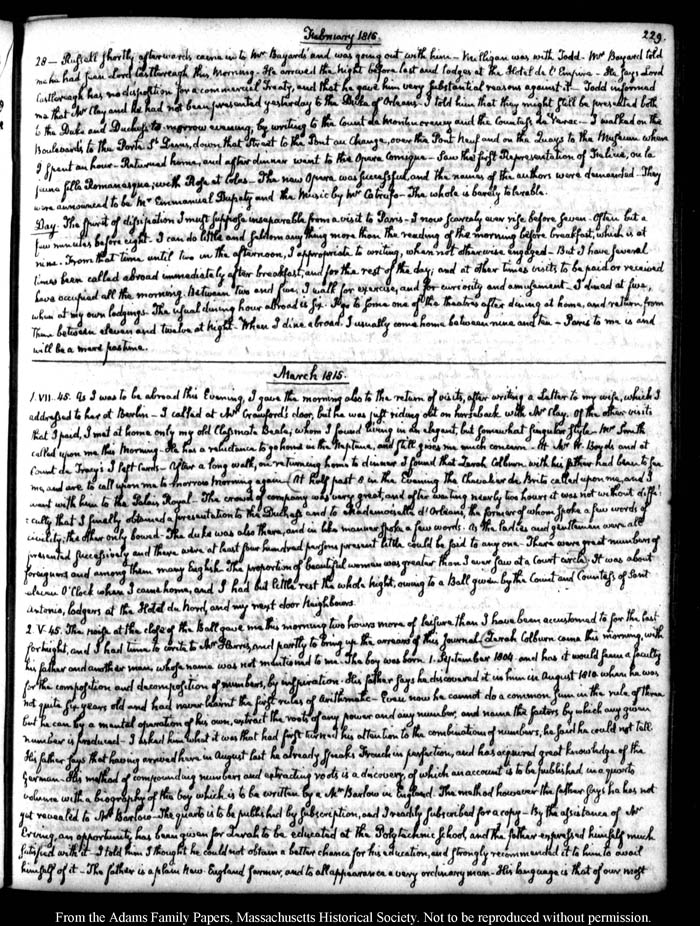 February 1815.
229.
28 — Russell shortly afterwards came in to Mr Bayard's and was going out with him — Milligan was with Todd. Mr Bayard told
me he had seen Lord Castlereagh this Morning. He arrived the Night before last and lodges at the Hotel de l'Empire — He says Lord
Castlereagh has no disposition for a commercial Treaty, and that he gave him very substantial reasons against it — Todd informed
me that Mr Clay and he had not been presented yesterday to the Duke of Orleans. I told him that they might still be presented both
to the Duke and Duchess to-morrow evening, by writing to the Count de Montmorency and the Countess de Verac — I walked on the
Boulevards to the Porte St Denis, down that Street to the Pont au Change, over the Pont Neuf and on the Quays to the Museum where
I spent an hour — Returned home, and after dinner went to the Opera Comique — Saw the first Representation of ou la
jeune fille Romanesque, with Rose et Colas. The new Opera was successful, and the names of the authors were demanded. They
were announced to be Mr Emmanuel Dupaty and the Music by Mr Catrufo — The whole is barely tolerable.
Day. The Spirit of dissipation I must suppose inseparable from a visit to Paris — I now scarcely ever rise before seven — Often but a
few minutes before eight — I can do little and seldom any thing more than the reading of the morning before breakfast, which is at
nine. From that time until two in the afternoon, I appropriate to writing, when not otherwise engaged — But I have several
times been called abroad immediately after breakfast, and for the rest of the day; and at other times visits, to be paid or received
have occupied all the morning. Between two and five, I walk for exercise, and for curiosity and amusement — I dined at five,
when at my own lodgings. The usual dining hour abroad is six. I go to some one of the theatres after dining at home, and return from
them between eleven and twelve at night. When I dine abroad I usually come home between nine and ten — Paris to me is and
will be a mere pastime.
March 1815.
1. VII. 45. As I was to be abroad this Evening, I gave the morning also to the return of visits, after writing a Letter to my wife, which I
addressed to her at Berlin — I called at Mr Crawford's door, but he was just riding out on horseback with Mr Clay. Of the other visits
that I paid, I met at home only my old Classmate Beale, whom I found living in an elegant, but somewhat singular Style — Mr Smith
called upon me this Morning — He has a reluctance to go home in the Neptune, and still gives me much concern — At Mr W. Boyds and at
Count de Tracy's I left Cards — After a long walk, on returning home to dinner I found that Zerah Colburn with his father had been to see
me, and are to call upon me to-morrow Morning again. At half past 8 in the Evening the Chevalier de Brito called upon me, and I
went with him to the Palais Royal — The crowd of company was very great, and after waiting nearly two hours it was not without diffi-
culty that I finally obtained a presentation to the Duchess and to Mademoiselle d'Orleans, the former of whom spoke a few words of
civility; the other only bowed — The duke was also there, and in like manner spoke a few words. As the Ladies and gentlemen were all
presented successively and there were at least four hundred persons present little could be said to any one. There were great numbers of
foreigners and among them many English. The proportion of beautiful women was greater than I ever saw at a Court circle. It was about
eleven O'Clock when I came home, and I had but little rest the whole night, owing to a Ball given by the Count and Countess of Sant
Antonio, lodgers at the Hotel du Nord, and my next door Neighbours.
2. V. 45. The noise at the close of the Ball gave me this morning two hours more of leisure than I have been accustomed to for the last
fortnight, and I had time to write to Mr Harris, and partly to bring up the arrears of this Journal. Zerah Colburn came this morning, with
his father and another man whose name was not mentioned to me. The boy was born 1. September 1804 and has it would seem a faculty
for the composition and decomposition of numbers, by inspiration — His father says he discovered it in him in August 1810 when he was
not quite six years old and had never learnt the first rules of Arithmetic — Even now he cannot do a common sum in the rule of three
but he can by a mental operation of his own, extract the roots of any power and any number, and name the factors by which any given
number is produced — I asked him what it was that had first turned his attention to the combination of numbers, he said he could not tell.
His father says that having arrived here in August last he already speaks French in perfection, and has acquired great knowledge of the
German — His method of compounding numbers and extracting roots is a discovery, of which an account is to be published in a quarto
volume with a biography of the boy which is to be written by a Mr Barlow in England. The method however the father says he has not
yet revealed to Mr Barlow — The quarto is to be published by subscription, and I readily subscribed for a copy — By the assistance of Mr
Erving, an opportunity has been given for Zerah to be educated at the Polytechnic School, and the father expressed himself much
satisfied with it — I told him I thought he could not obtain a better chance for his education, and strongly recommended it to him to avail
himself of it — The father is a plain New-England farmer, and to all appearance a very ordinary man — His language is that of our most
From the Adams Family Papers, Massachusetts Historical Society. Not to be reproduced without permission.